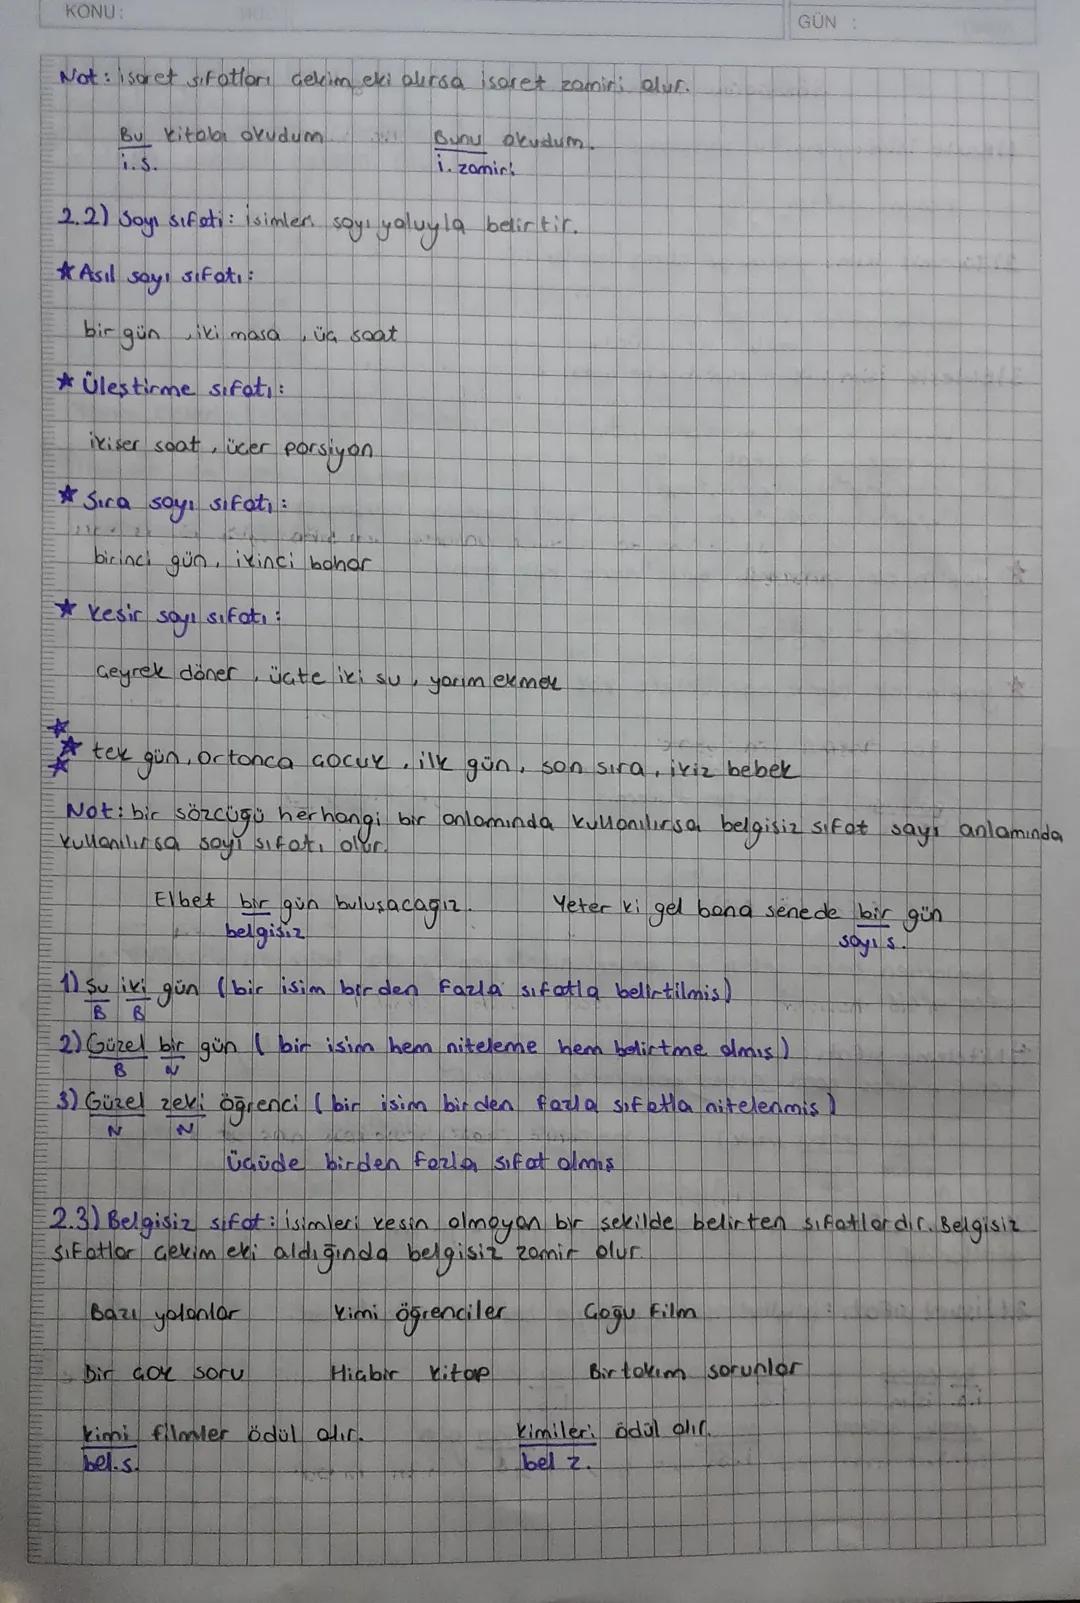 KONU:
GÜN :
Not: işaret sıfatları çekim eki alırsa işaret zamiri olur.
Bu kitabı okudum Bunu okudum.
i.s. i. zamiri
2.2) Sayı sıfatı: isimleri sayı yoluyla belirtir.
★ Asıl sayı sıfatı:
bir gün, iki masa, üç saat
★ Üleştirme sıfatı:
ikişer saat, üçer porsiyon
★ Sıra sayı sıfatı:
birinci gün, ikinci bahar
★ Kesir sayı sıfatı:
Çeyrek döner, üçte iki su, yarım ekmek
★★★ tek gün, ortanca çocuk, ilk gün, son sıra, ikiz bebek
Not: bir sözcüğü herhangi bir anlamında kullanılırsa belgisiz sıfat sayı anlamında
kullanılırsa sayı sıfatı olur.
Elbet bir gün buluşacağız. Yeter ki gel bana senede bir gün
belgisiz sayı s.
1) Şu iki gün (bir isim birden fazla sıfatla belirtilmiş)
B B
2) Güzel bir gün ( bir isim hem niteleme hem belirtme olmış)
B N
3) Güzel zeki öğrenci ( bir isim birden fazla sıfatla nitelenmiş )
N N
üçüde birden fazla sıfat olmış
2.3) Belgisiz sıfat: isimleri kesin olmayan bir şekilde belirten sıfatlardır. Belgisiz
sıfatlar çekim eki aldığında belgisiz zamir olur.
Bazı yalanlar Kimi öğrenciler Çoğu film
Bir çok soru Hiçbir kitap Birtakım sorunlar
Kimi filmler ödül alır. Kimileri ödül alır.
bel.s. bel z.